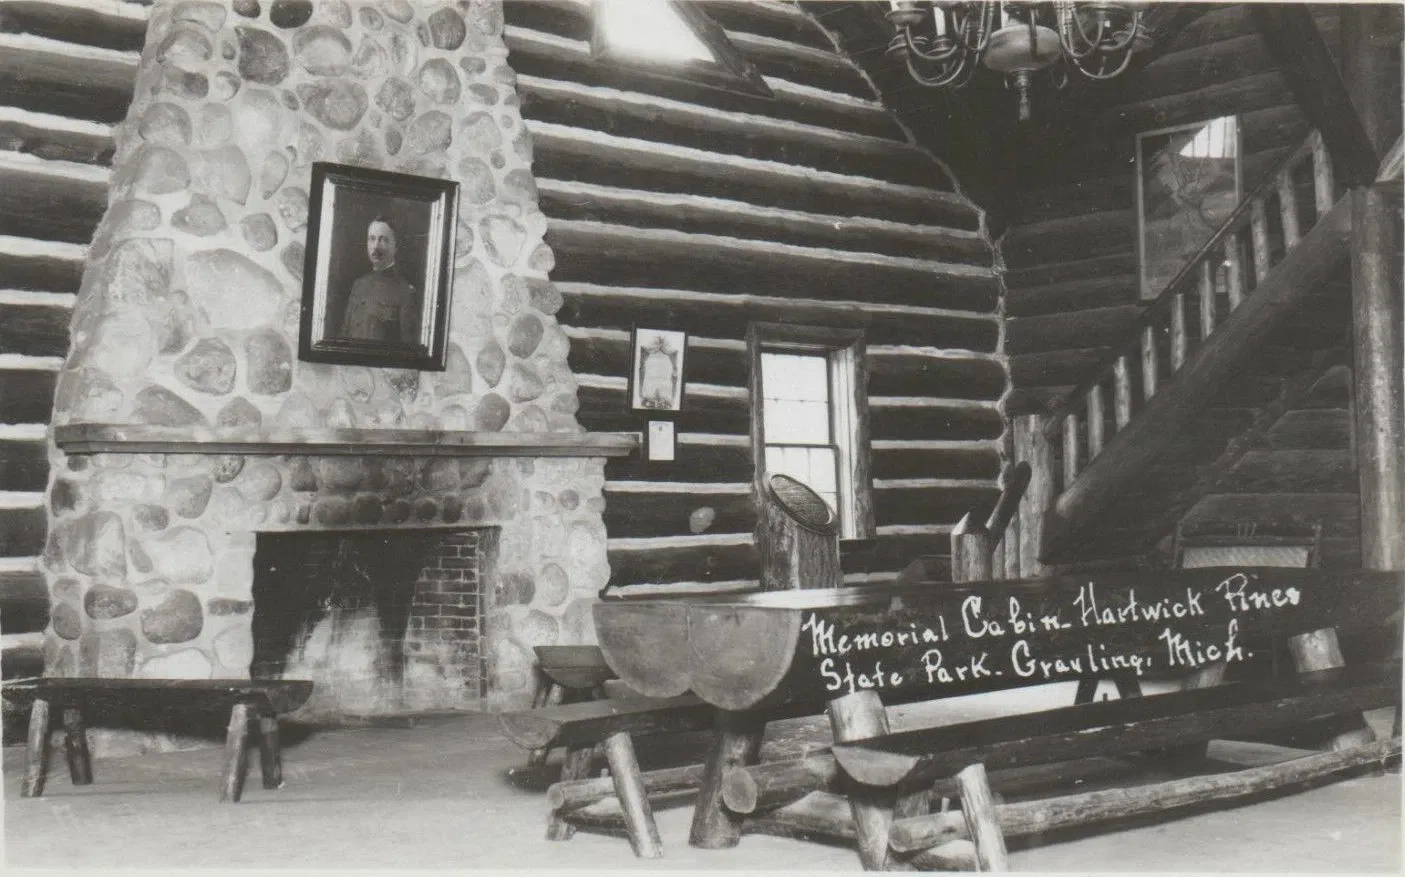 Memorial Cabin-Hartwick Pines
State Park-Grayling, Mich.